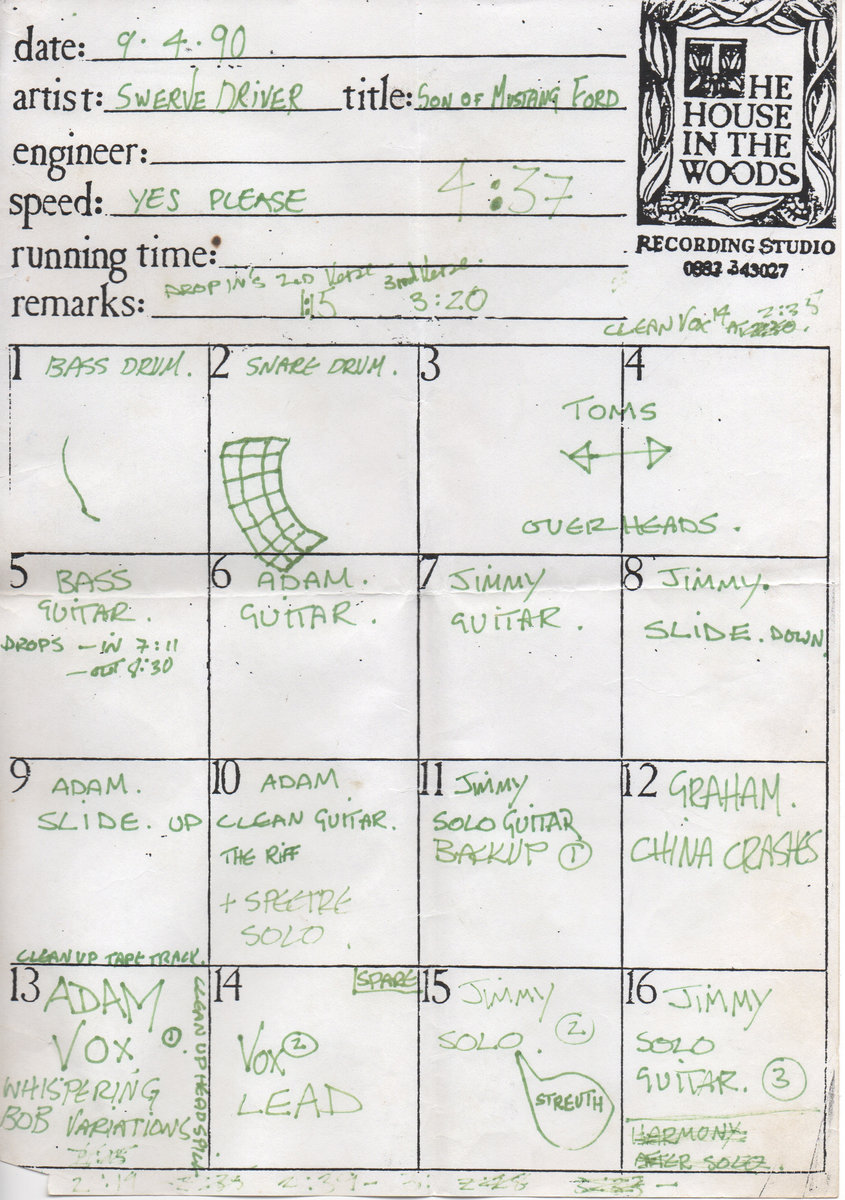 date: 9.4.90
artist: SWERVE DRIVER title: SON OF MUSTANG FORD
engineer:
speed: YES PLEASE 4:37
running time:
DROP IN'S 2ND Verse 3rd Verse.
remarks: 1:15 3:20
THE
HOUSE
IN THE
WOODS
RECORDING STUDIO
0883 343027
CLEAN VOX 14 AT 2:35
1 BASS DRUM.
2 SNARE DRUM.
3
4
TOMS
OVER HEADS.
5 BASS
GUITAR.
DROPS - IN 7:11
- OUT 8:30
6 ADAM.
GUITAR.
7 JIMMY
GUITAR.
8 JIMMY.
SLIDE. DOWN
9 ADAM.
SLIDE. UP
CLEAN UP TAPE TRACK.
10 ADAM
CLEAN GUITAR.
THE RIFF
+ SPECTRE
SOLO.
11 Jimmy
SOLO GUITAR
BACKUP 1
12 GRAHAM.
CHINA CRASHES
13 ADAM
VOX 1
WHISPERING
BOB VARIATIONS.
CLEAN UP HEADSPILL
14 SPARE
VOX 2
LEAD
15 JIMMY
SOLO. 2
STREUTH
16 JIMMY
SOLO
GUITAR. 3
HARMONY
AFTER SOLO2.
2:19 2:35